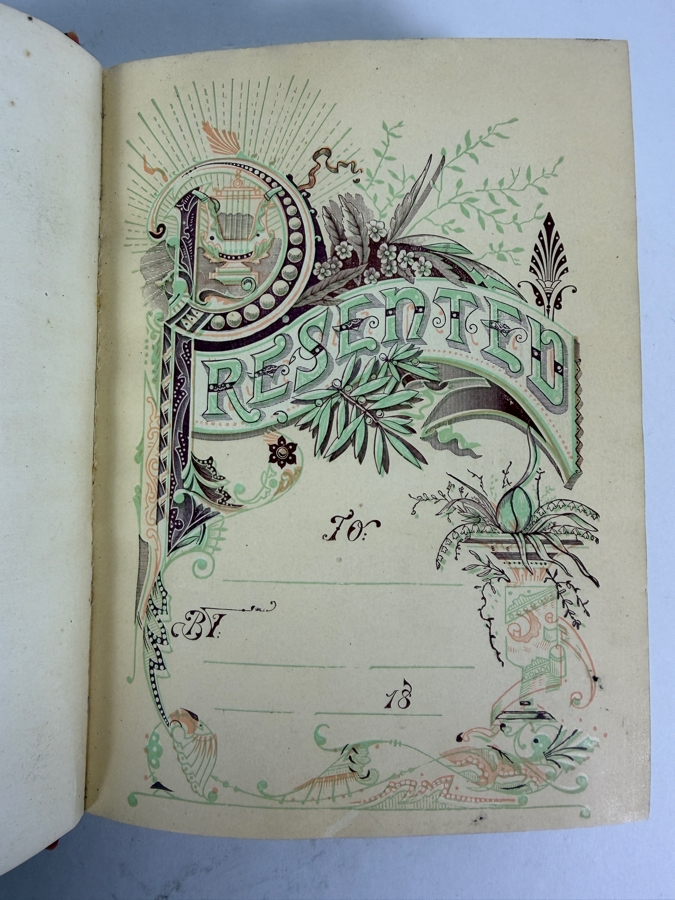 PRESENTED
To:
BY:
18